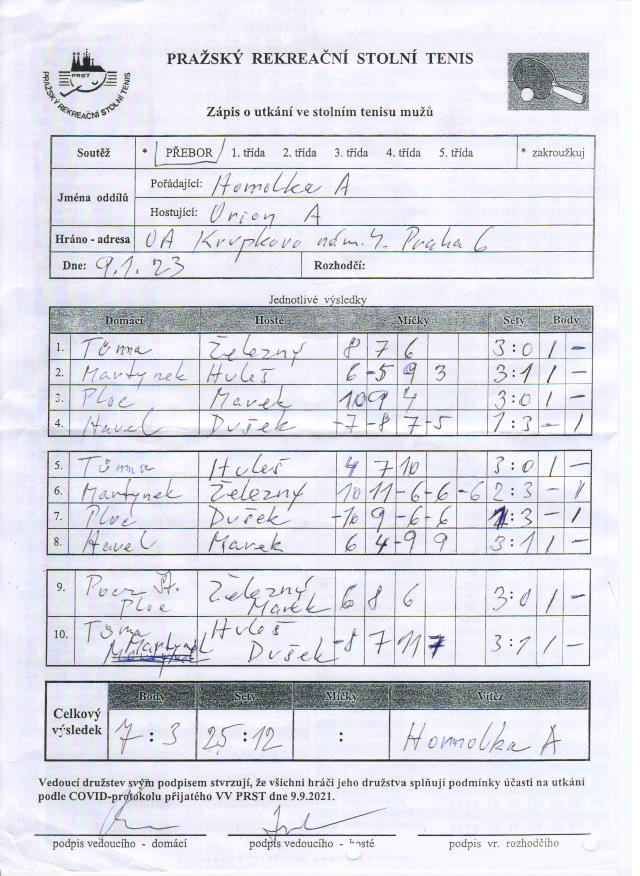 PRAŽSKÝ REKREAČNÍ STOLNÍ TENIS
PRST
PRAŽSKÝ REKREAČNÍ STOLNÍ TENIS
Zápis o utkání ve stolním tenisu mužů
Soutěž * PŘEBOR 1. třída 2. třída 3. třída 4. třída 5. třída * zakroužkuj
Jména oddílů
Pořádající: Homolka A
Hostující: Orion A
Hráno - adresa UA Krupkovo nám. 4. Praha 6
Dne: 9.1.23 Rozhodčí:
Jednotlivé výsledky
Domácí Hosté Míčky Sety Body
1. Tůma Železný 8 7 6 3:0 1 -
2. Martynek Huleš 6 -5 9 3 3:1 1 -
3. Ploc Marek 10 9 4 3:0 1 -
4. Havel Dušek -7 -8 7 -5 1:3 - 1
5. Tůma Huleš 4 7 10 3:0 1 -
6. Martynek Železný 10 11 -6 -6 -6 2:3 - 1
7. Ploc Dušek -10 9 -6 -6 1:3 - 1
8. Havel Marek 6 4 -9 9 3:1 1 -
9. Št. Železný 6 8 6 3:0 1 -
Ploc Marek
10. Tůma Huleš -8 7 11 7 3:1 1 -
Martynek Dušek
Celkový výsledek
Body Sety Míčky Vítěz
7 : 3 25 : 12 : Homolka A
Vedoucí družstev svým podpisem stvrzují, že všichni hráči jeho družstva splňují podmínky účasti na utkání
podle COVID-protokolu přijatého VV PRST dne 9.9.2021.
podpis vedoucího - domácí podpis vedoucího - hosté podpis vr. rozhodčího